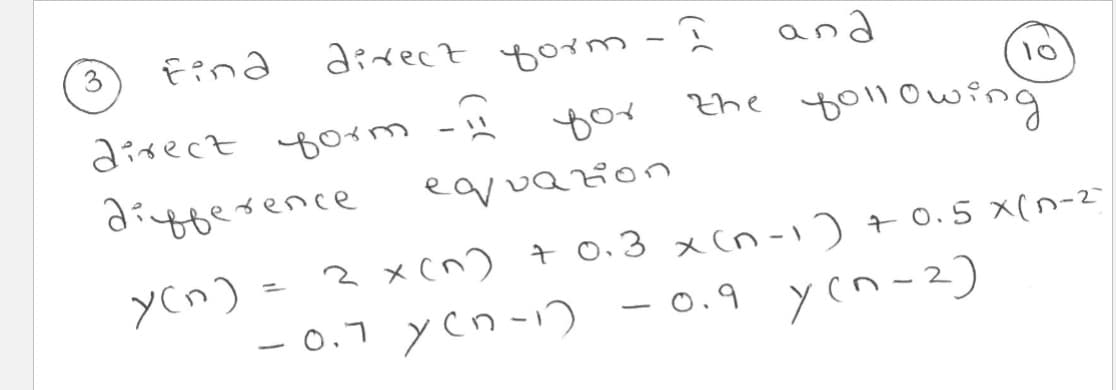 3 Find direct form - I and 10
direct form - II for the following
difference equation
y(n) = 2 x(n) + 0.3 x(n-1) + 0.5 x(n-2
- 0.7 y(n-1) - 0.9 y(n-2)